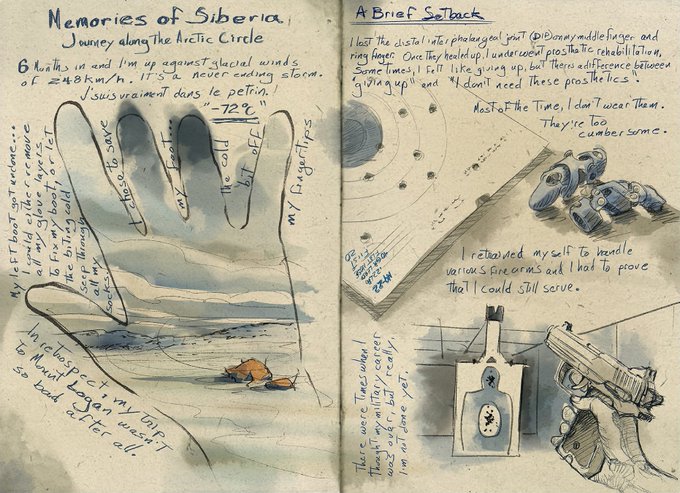 Memories of Siberia
Journey along the Arctic Circle
6 Months in and I'm up against glacial winds
of 248km/h. It's a never ending storm.
J'suis vraiment dans le petrin!
"-72°C"
My left boot got undone...
I could either remove
all my glove layers,
to fix my boot, or let
the biting cold
seep through
all my
socks.
I chose to save
my foot...
the cold
bit off
my fingertips!
In retrospect, my trip
to Mount Logan wasn't
so bad after all.
A Brief Setback
I lost the distal interphalangeal joint (DIP) on my middle finger and
ring finger. Once they healed up, I underwent prosthetic rehabilitation,
Sometimes, I felt like giving up, but there's a difference between
"giving up" and "I don't need these prosthetics".
Most of the time, I don't wear them.
They're too
cumbersome.
I retrained myself to handle
various firearms and I had to prove
that I could still serve.
There were times when I
thought my military career
was over, but really,
I'm not done yet.